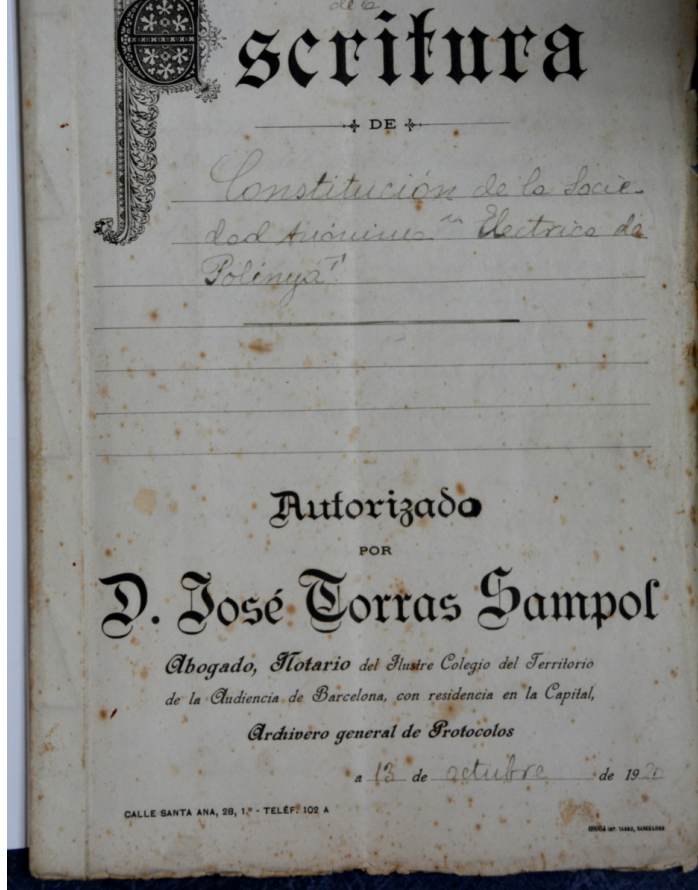 de la
Escritura
DE
Constitución de la Socie-
dad Anónima "Electrica de
Polinyá"
Autorizada
POR
D. José Torras Sampol
Abogado, Notario del Ilustre Colegio del Territorio
de la Audiencia de Barcelona, con residencia en la Capital,
Archivero general de Protocolos
a 13 de octubre de 1920
CALLE SANTA ANA, 28, 1.º - TELÉF. 102 A
IMP. TASSO, BARCELONA